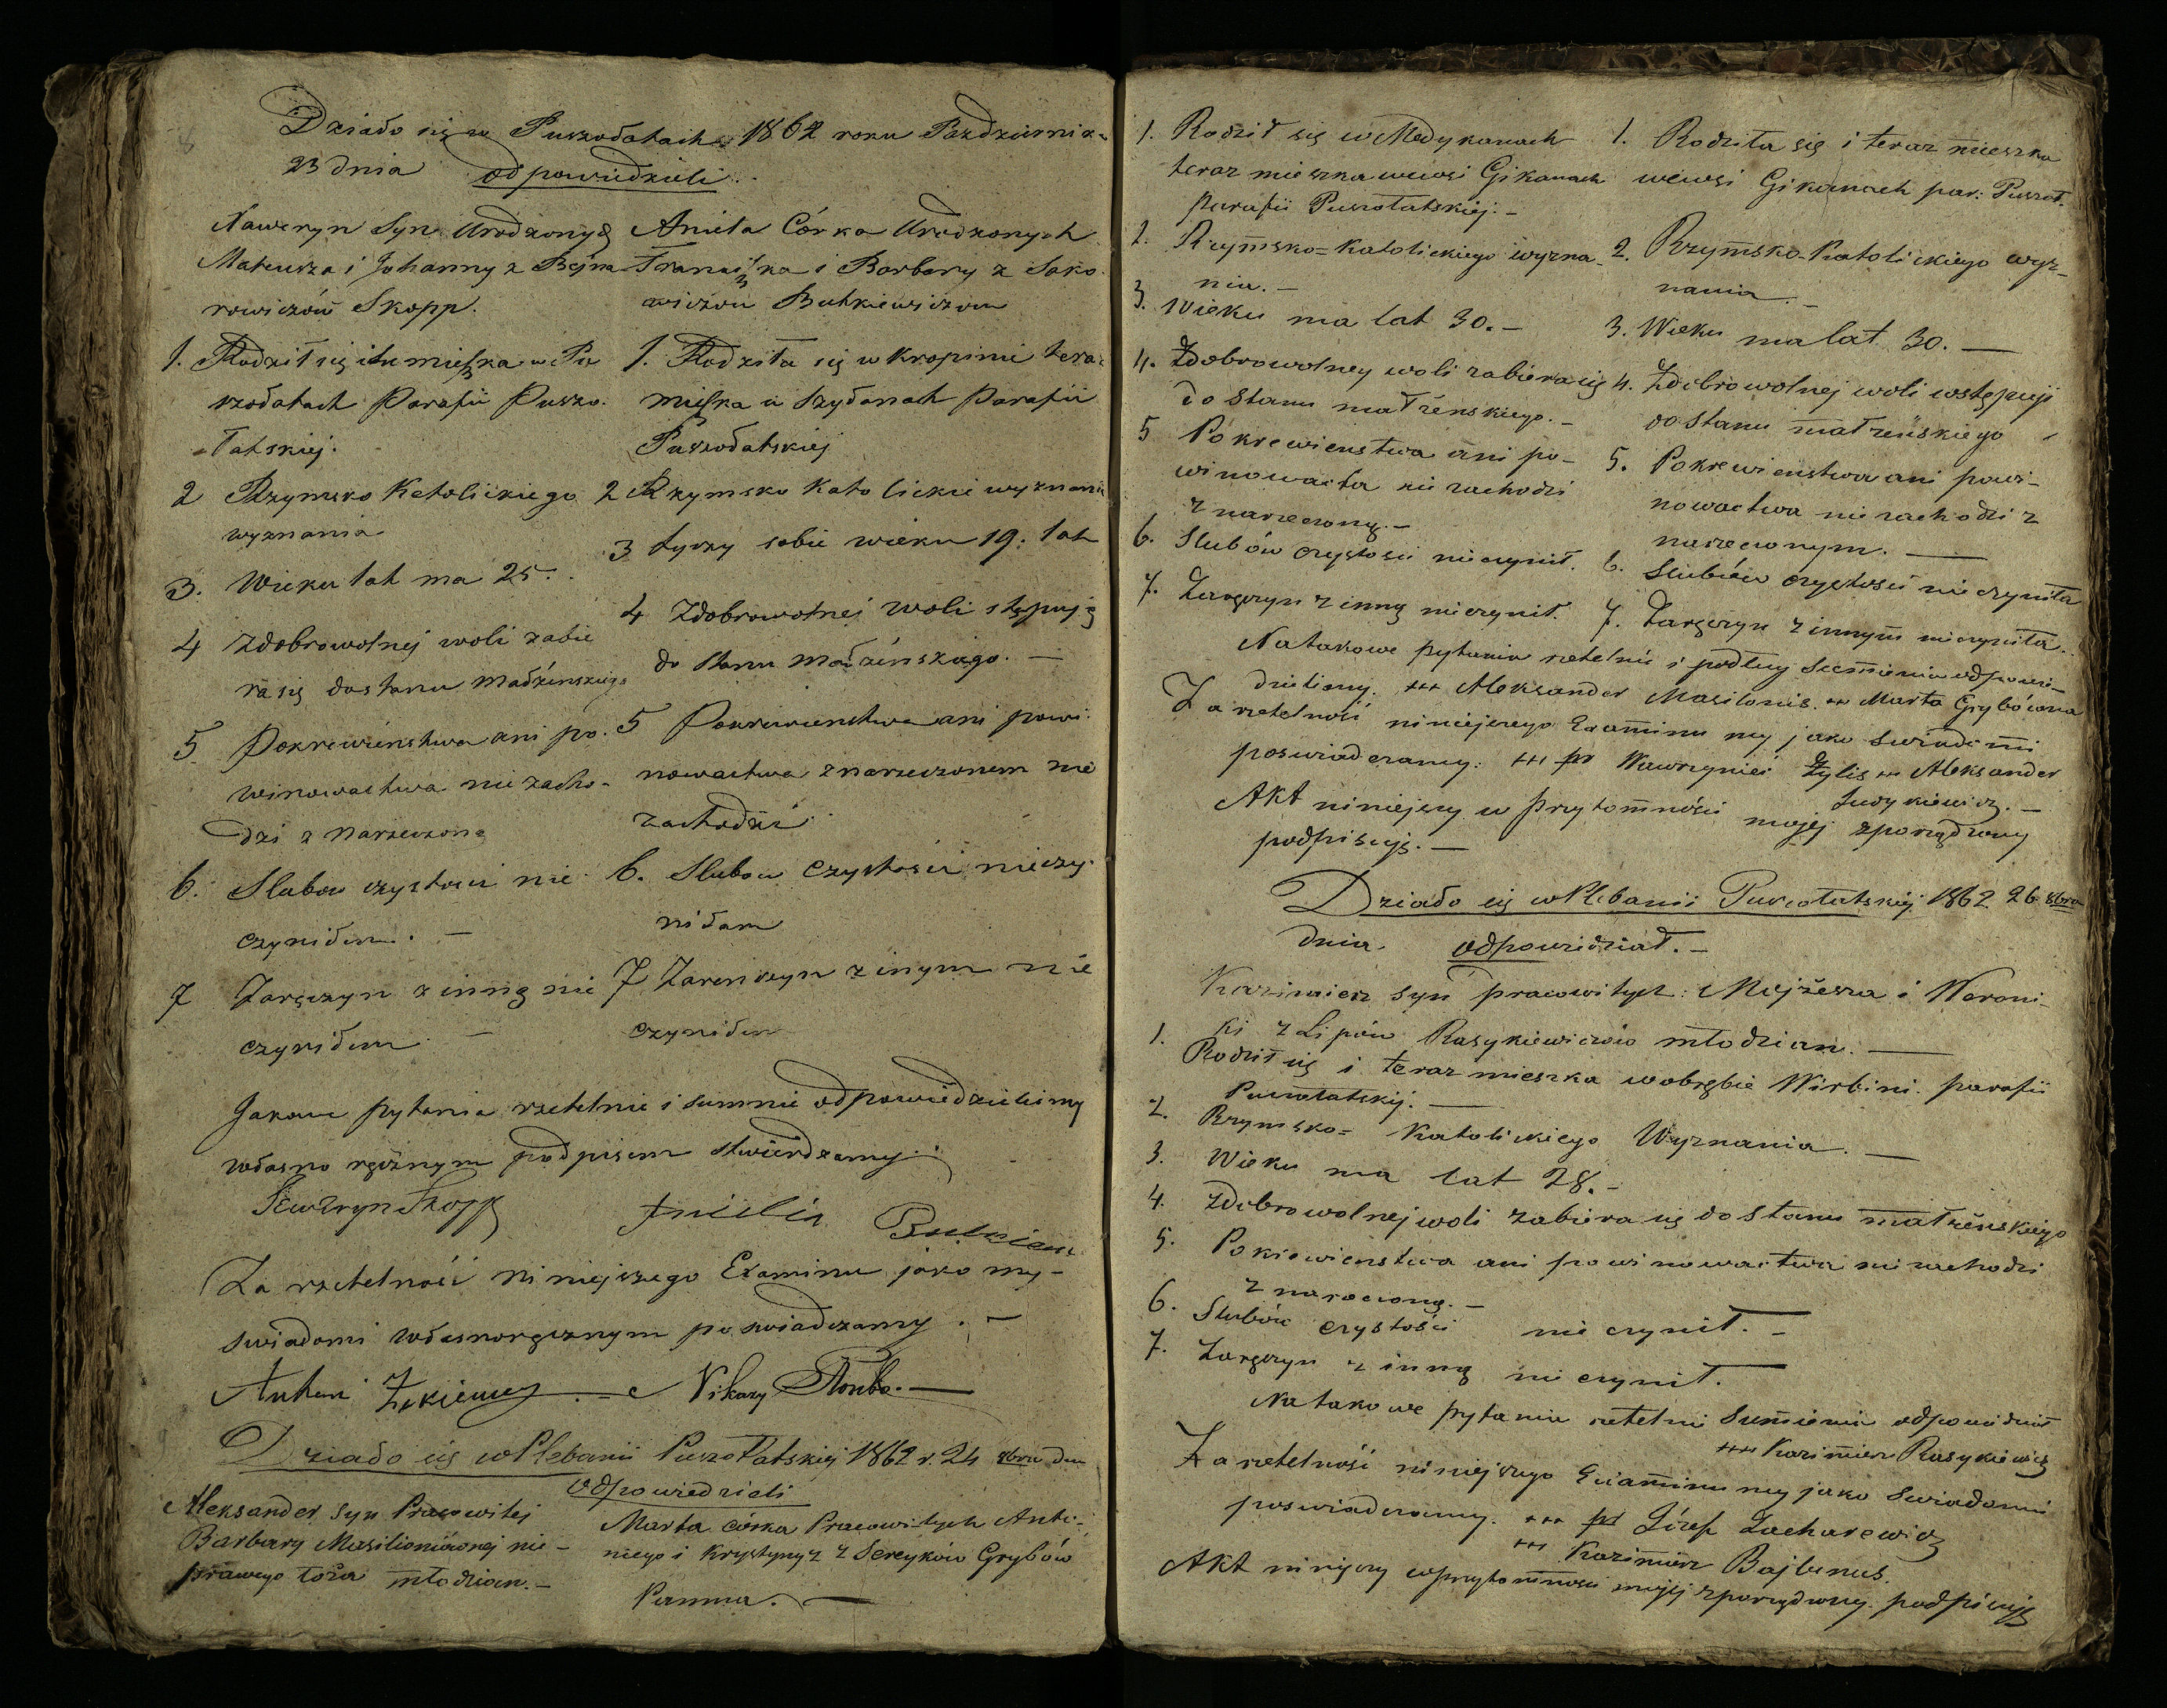 Działo się w Puszołatach 1862 roku Pazdziernika
23 dnia odpowiedzieli.
Naweryn Syn Urodzonych
Mateusza i Johanny z Bejna
rowiczów Skopp.
1. Rodził się i tu mieszka w Pu
szołatach Parafii Puszo-
łatskiej.
2 Rzymsko Katolickiego
wyznania
3. Wieku lat ma 25.
4 Zdobrowolnej woli zabie
ra się do stanu małżenskiego
5 Pokrewienstwa ani po-
winowactwa nie zacho-
dzi z narzeczoną
6. Slubow czystosci nie
czyniłem. —
7 Zaręczyn z inną nie
czyniłem. —
Aniela Córka Urodzonych
Franciszka i Barbary z Sako
wiczow Butkiewiczow
1. Rodziła się w Kropinie tera
mieszka w Szyłanach Parafii
Puszołatskiej
2 Rzymsko Katolickie wyznania
3 Łyczy sobie wieku 19. lat
4 Zdobrowolnej woli stępuję
do stanu małżeńskiego. —
5 Pokrewienstwa ani powi-
nowactwa z narzeczonem nie
zachodzi
6. Slubow czystości nieczy-
niłam
7 Zarenczyn z inym nie
czyniłam
Jakowe pytania rzetelnie i sumnie odpowiedzielismy
własno ręcznym podpisem stwierdzamy.
Seweryn Skopp Anielia Butkiew
Za rzetelność niniejszego Examinu jako my-
swiadomi własnoręcznym poswiadczamy. —
Antoni Wikary
Działo się w Plebanii Puszołatskiej 1862 r. 24 8bra dn
odpowiedzieli
Aleksander syn Pracowitej
Barbary Masilioniówonej nie-
prawego łoża młodzian. —
Marta córka Pracowitych Anto-
niego i Krystyny z Sereyków Grybów
Panna. —
1. Rodził się w Medykanach
teraz mieszka wewsi Gikanach
Parafii Puszołatskiej. —
2. Rzymsko-Katolickiego wyzna-
nia. —
3. Wieku ma lat 30. —
4. Zdobrowolney woli zabiera się
do stanu małżenskiego. —
5 Pokrewienstwa ani po-
winowacta nie zachodzi
z narzeczoną. —
6. Slubów czystosci nieczynił.
7. Zaręczyn z inną nieczynił.
1. Rodziła się i teraz mieszka
wewsi Gikanach par: Puszoł.
2. Rzymsko-Katolickiego wyz-
nania. —
3. Wieku ma lat 30. —
4. Zdobrowolnej woli wstępuje
do stanu małżeńskiego
5. Pokrewienstwa ani powi-
nowactwa nie zachodzi z
narzeczonym. —
6. Slubów czystosci nie czyniła
7. Zaręczyn z innym nieczyniła.
Na takowe pytania rzetelnie i podług Sumienia odpowie-
dzielismy. +++ Aleksander Masilonis. +++ Marta Grybówna
Za rzetelność niniejszego Examinu my jako swiadomi
poswiadczamy: +++ Wawrzyniec Żylis +++ Aleksander
Judykiewicz. —
Akt niniejszy w przytomności mojej zporządzony
podpisuję. —
Działo się w Plebanii Puszołatskiej 1862 26 8bra
dnia. odpowiedział. —
Kazimierz syn pracowitych: Mojżesza i Weroni-
ki z Lipów Rasykiewiczów młodzian. —
1. Rodził się i teraz mieszka wobrębie Wirbini. parafii
Puszołatskij. —
2. Rzymsko- Katolickiego Wyznania. —
3. Wieku ma lat 28. —
4. Zdobrowolnej woli zabiera się do stanu małżeńskiego
5. Pokrewienstwa ani powinowactwa nie zachodzi
z narzeczoną. —
6. Slubów czystości nie czynił. —
7. Zaręczyn z inną nie czynił.
Na takowe pytania rzetelnie Sumienia odpowiedział
+++ Kazimierz Rasykiewicz
Za rzetelność niniejszego Examinu my jako Swiadomi
poswiadczamy. +++ Józef Zacharewicz
+++ Kazimierz Bajtunus.
Akt niniejszy w przytomnosci mojej zporządzony. podpisuję